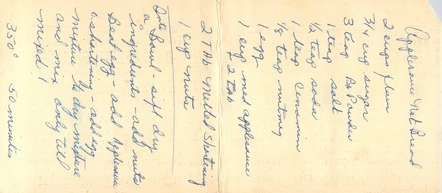 Applesauce Nut Bread
2 cups flour
3/4 cup sugar
3 teas B. Powder
1 teas salt
1/2 teas soda
1 teas Cinnamon
1/8 teas nutmeg
1 egg
1 cup med applesauce
2 Tab
2 Tab Melted Shortening
1 cup nuts
Into Bowl - sift dry
ingredients - add nuts
Beat egg - add Applesauce
& shortening - add egg
mixture to dry mixture
and mix only till
mixed!
350° 50 minutes